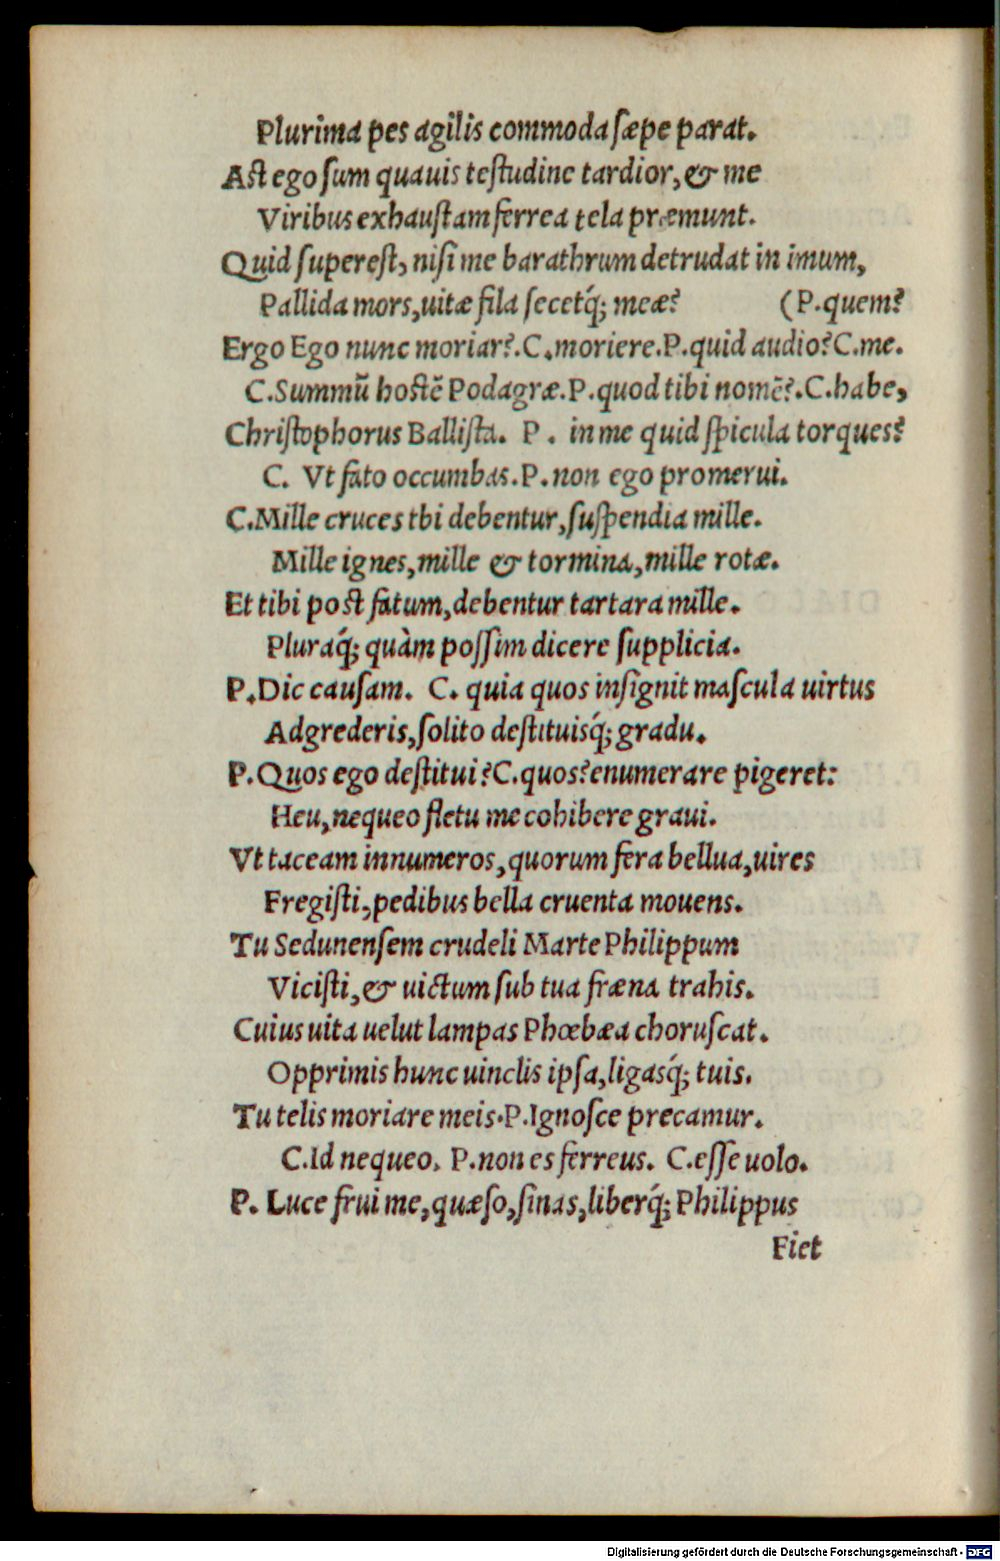 Plurima pes agilis commoda ſæpe parat.
Aſt ego ſum quauis teſtudine tardior, & me
Viribus exhauſtam ferrea tela præmunt.
Quid ſupereſt, niſi me barathrum detrudat in imum,
Pallida mors, uitæ fila ſecetq́; meæ? (P. quem?
Ergo Ego nunc moriar?. C. moriere. P. quid audio? C. me.
C. Summū hoſtē Podagræ. P. quod tibi nomē?. C. habe,
Chriſtophorus Balliſta. P. in me quid ſpicula torques?
C. Vt fato occumbas. P. non ego promerui.
C. Mille cruces tbi debentur, ſuſpendia mille.
Mille ignes, mille & tormina, mille rotæ.
Et tibi poſt fatum, debentur tartara mille.
Pluraq́; quàm poſſim dicere ſupplicia.
P. Dic cauſam. C. quia quos inſignit maſcula uirtus
Adgrederis, ſolito deſtituisq́; gradu.
P. Quos ego deſtitui? C. quos? enumerare pigeret:
Heu, nequeo fletu me cohibere graui.
Vt taceam innumeros, quorum fera bellua, uires
Fregiſti, pedibus bella cruenta mouens.
Tu Sedunenſem crudeli Marte Philippum
Viciſti, & uictum ſub tua fræna trahis.
Cuius uita uelut lampas Phœbæa choruſcat.
Opprimis hunc uinclis ipſa, ligasq́; tuis.
Tu telis moriare meis. P. Ignoſce precamur.
C. Id nequeo. P. non es ferreus. C. eſſe uolo.
P. Luce frui me, quæſo, ſinas, liberq́; Philippus
Fiet
Digitalisierung gefördert durch die Deutsche Forschungsgemeinschaft - DFG